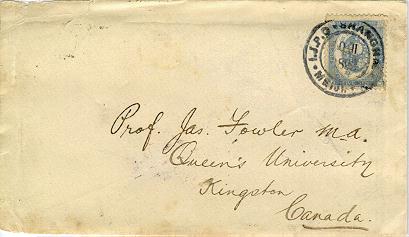 I.J.P.O SHANGHAI
MEIJI
Prof. Jas. Fowler M.a.
Queen's University
Kingston
Canada.